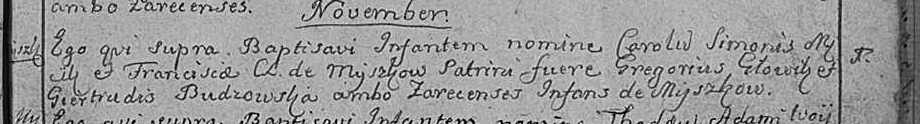 ambo Zarecenses.
November.
Ego qui supra Baptisavi Infantem nomine Carolū Simonis My
et Franciscæ de Myszkow Patrini fuere Gregorius et
Giertrudis Budzowska ambo Zarecenses Infans de Myszkow.
Ego qui supra Baptisavi Infantem nomine Adami